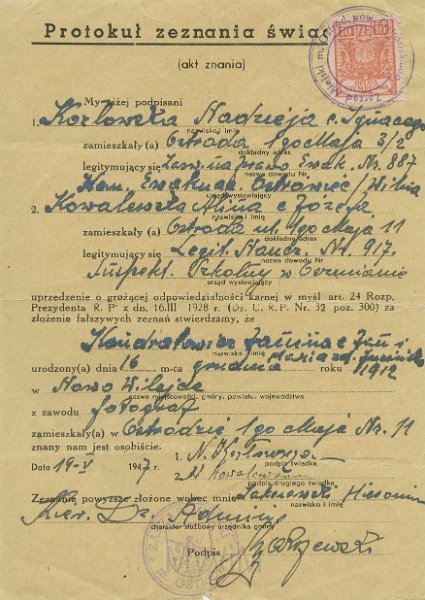 Protokuł zeznania świad
(akt znania)
My niżej podpisani
1. Kozłowska Nadzieja c. Ignacego
nazwisko i imię
zamieszkały(a) Ostróda 1go Maja 3/2
dokładny adres
legitymujący się Ewak. Nr. 887
nazwa dowodu Nr
Kom. Ewakuac. /Wilna
urząd wystawiający
2. Kowalewska Alina c Józefa
nazwisko i imię
zamieszkały(a) Ostróda ul. 1go Maja 11
dokładny adres
legitymujący się Legit. Naucz. Nr 917.
nazwa dowodu Nr
Inspekt. Szkolny w Oszmianie
urząd wystawiający
uprzedzone o grożącej odpowiedzialności karnej w myśl art. 24 Rozp.
Prezydenta R. P. z dn. 16.III 1928 r (Dz. U. R.P. Nr. 32 poz. 300) za
złożenie fałszywych zeznań stwierdzamy, że
Kondratowicz Janina c Jana i
nazwisko i imię
Maria
urodzony(a) dnia 16 m-ca grudnia roku 1912
w Nowo Wilejce
nazwa miejscowości, gminy, powiatu, województwa
z zawodu fotograf
zamieszkały(a) w Ostródzie 1go Maja Nr. 11
znany nam jest osobiście.
1. N. Kozłowska
podpis świadka
Data 19-V 1947 r. 2. A Kowalewska
podpis drugiego świadka
Zeznanie powyższe złożone wobec mnie Hieronim
nazwisko i imię
Kier. Dz. Admin
charakter służbowy urzędnika gminy
Podpis